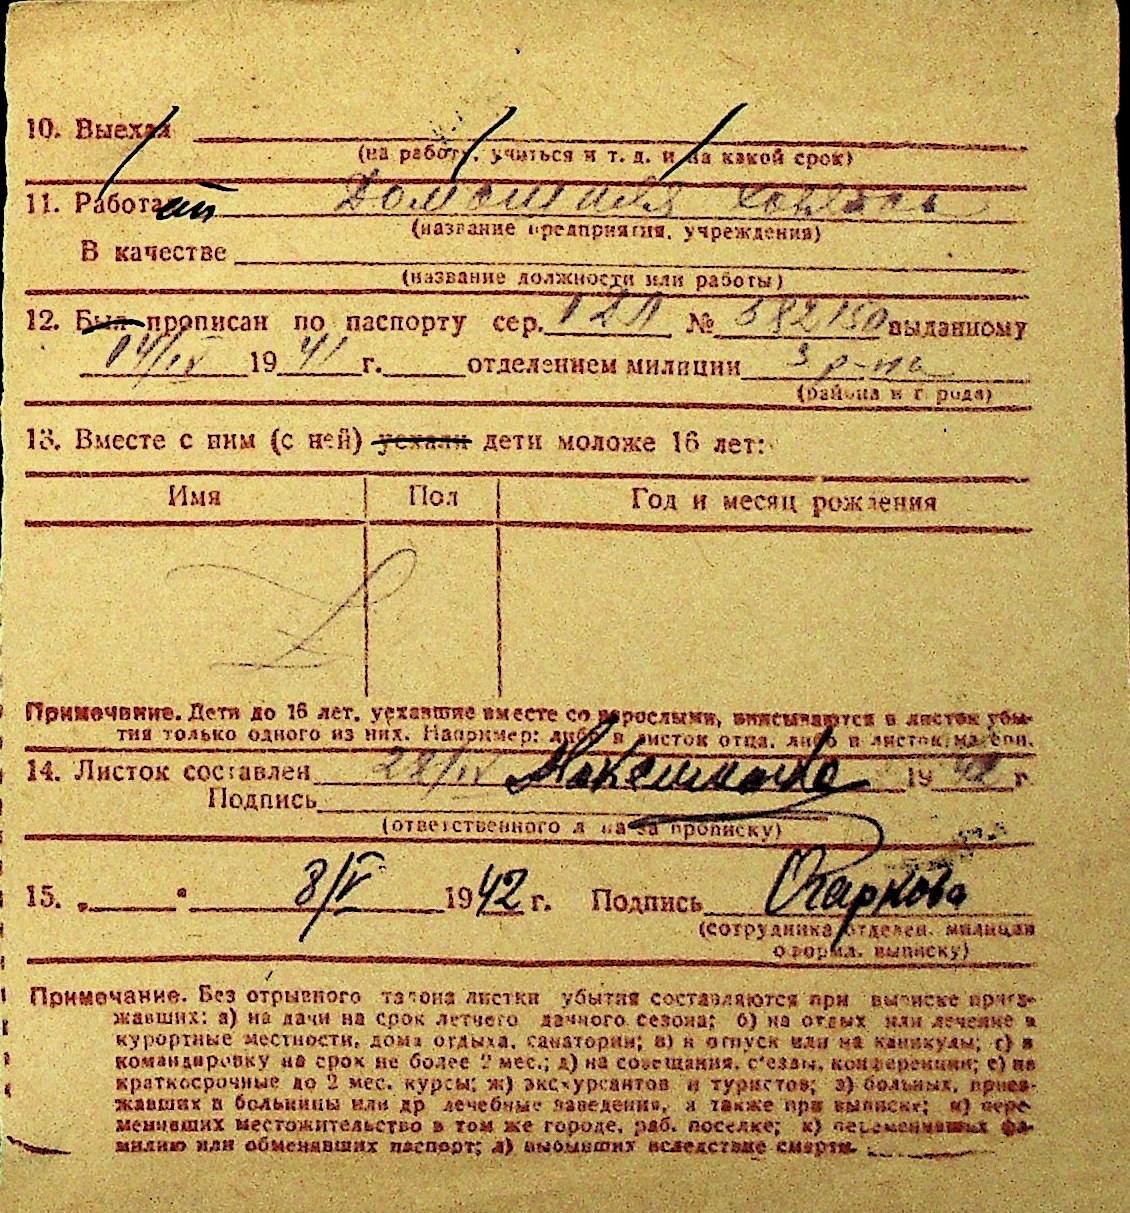 10. Выехал
(на работу, учиться и т. д. и на какой срок)
11. Работает Домашняя хозяйка
(название предприятия, учреждения)
В качестве
(название должности или работы)
12. Был прописан по паспорту сер. № 582150 выданному
04/IV 1941 г. отделением милиции 3 р-на
(района и города)
13. Вместе с ним (с ней) уехали дети моложе 16 лет:
Имя Пол Год и месяц рождения
Примечание. Дети до 16 лет, уехавшие вместе со взрослыми, вписываются в листок убы-
тия только одного из них. Например: либо в листок отца, либо в листок матери.
14. Листок составлен 28/IV 1942 г.
Подпись
(ответственного лица за прописку)
15. „ “ 8/V 1942 г. Подпись Очаркова
(сотрудника отделен. милиции
оформл. выписку)
Примечание. Без отрывного талона листки убытия составляются при выписке приез-
жавших: а) на дачи на срок летнего дачного сезона; б) на отдых или лечение в
курортные местности, дома отдыха, санатории; в) в отпуск или на каникулы; г) в
командировку на срок не более 2 мес.; д) на совещания, с'езды, конференции; е) на
краткосрочные до 2 мес. курсы; ж) экскурсантов и туристов; з) больных, приез-
жавших в больницы или др лечебные заведения, а также при выписке; и) пере-
менивших местожительство в том же городе, раб. поселке; к) переменивших фа-
милию или обменявших паспорт; л) выбывших вследствие смерти.